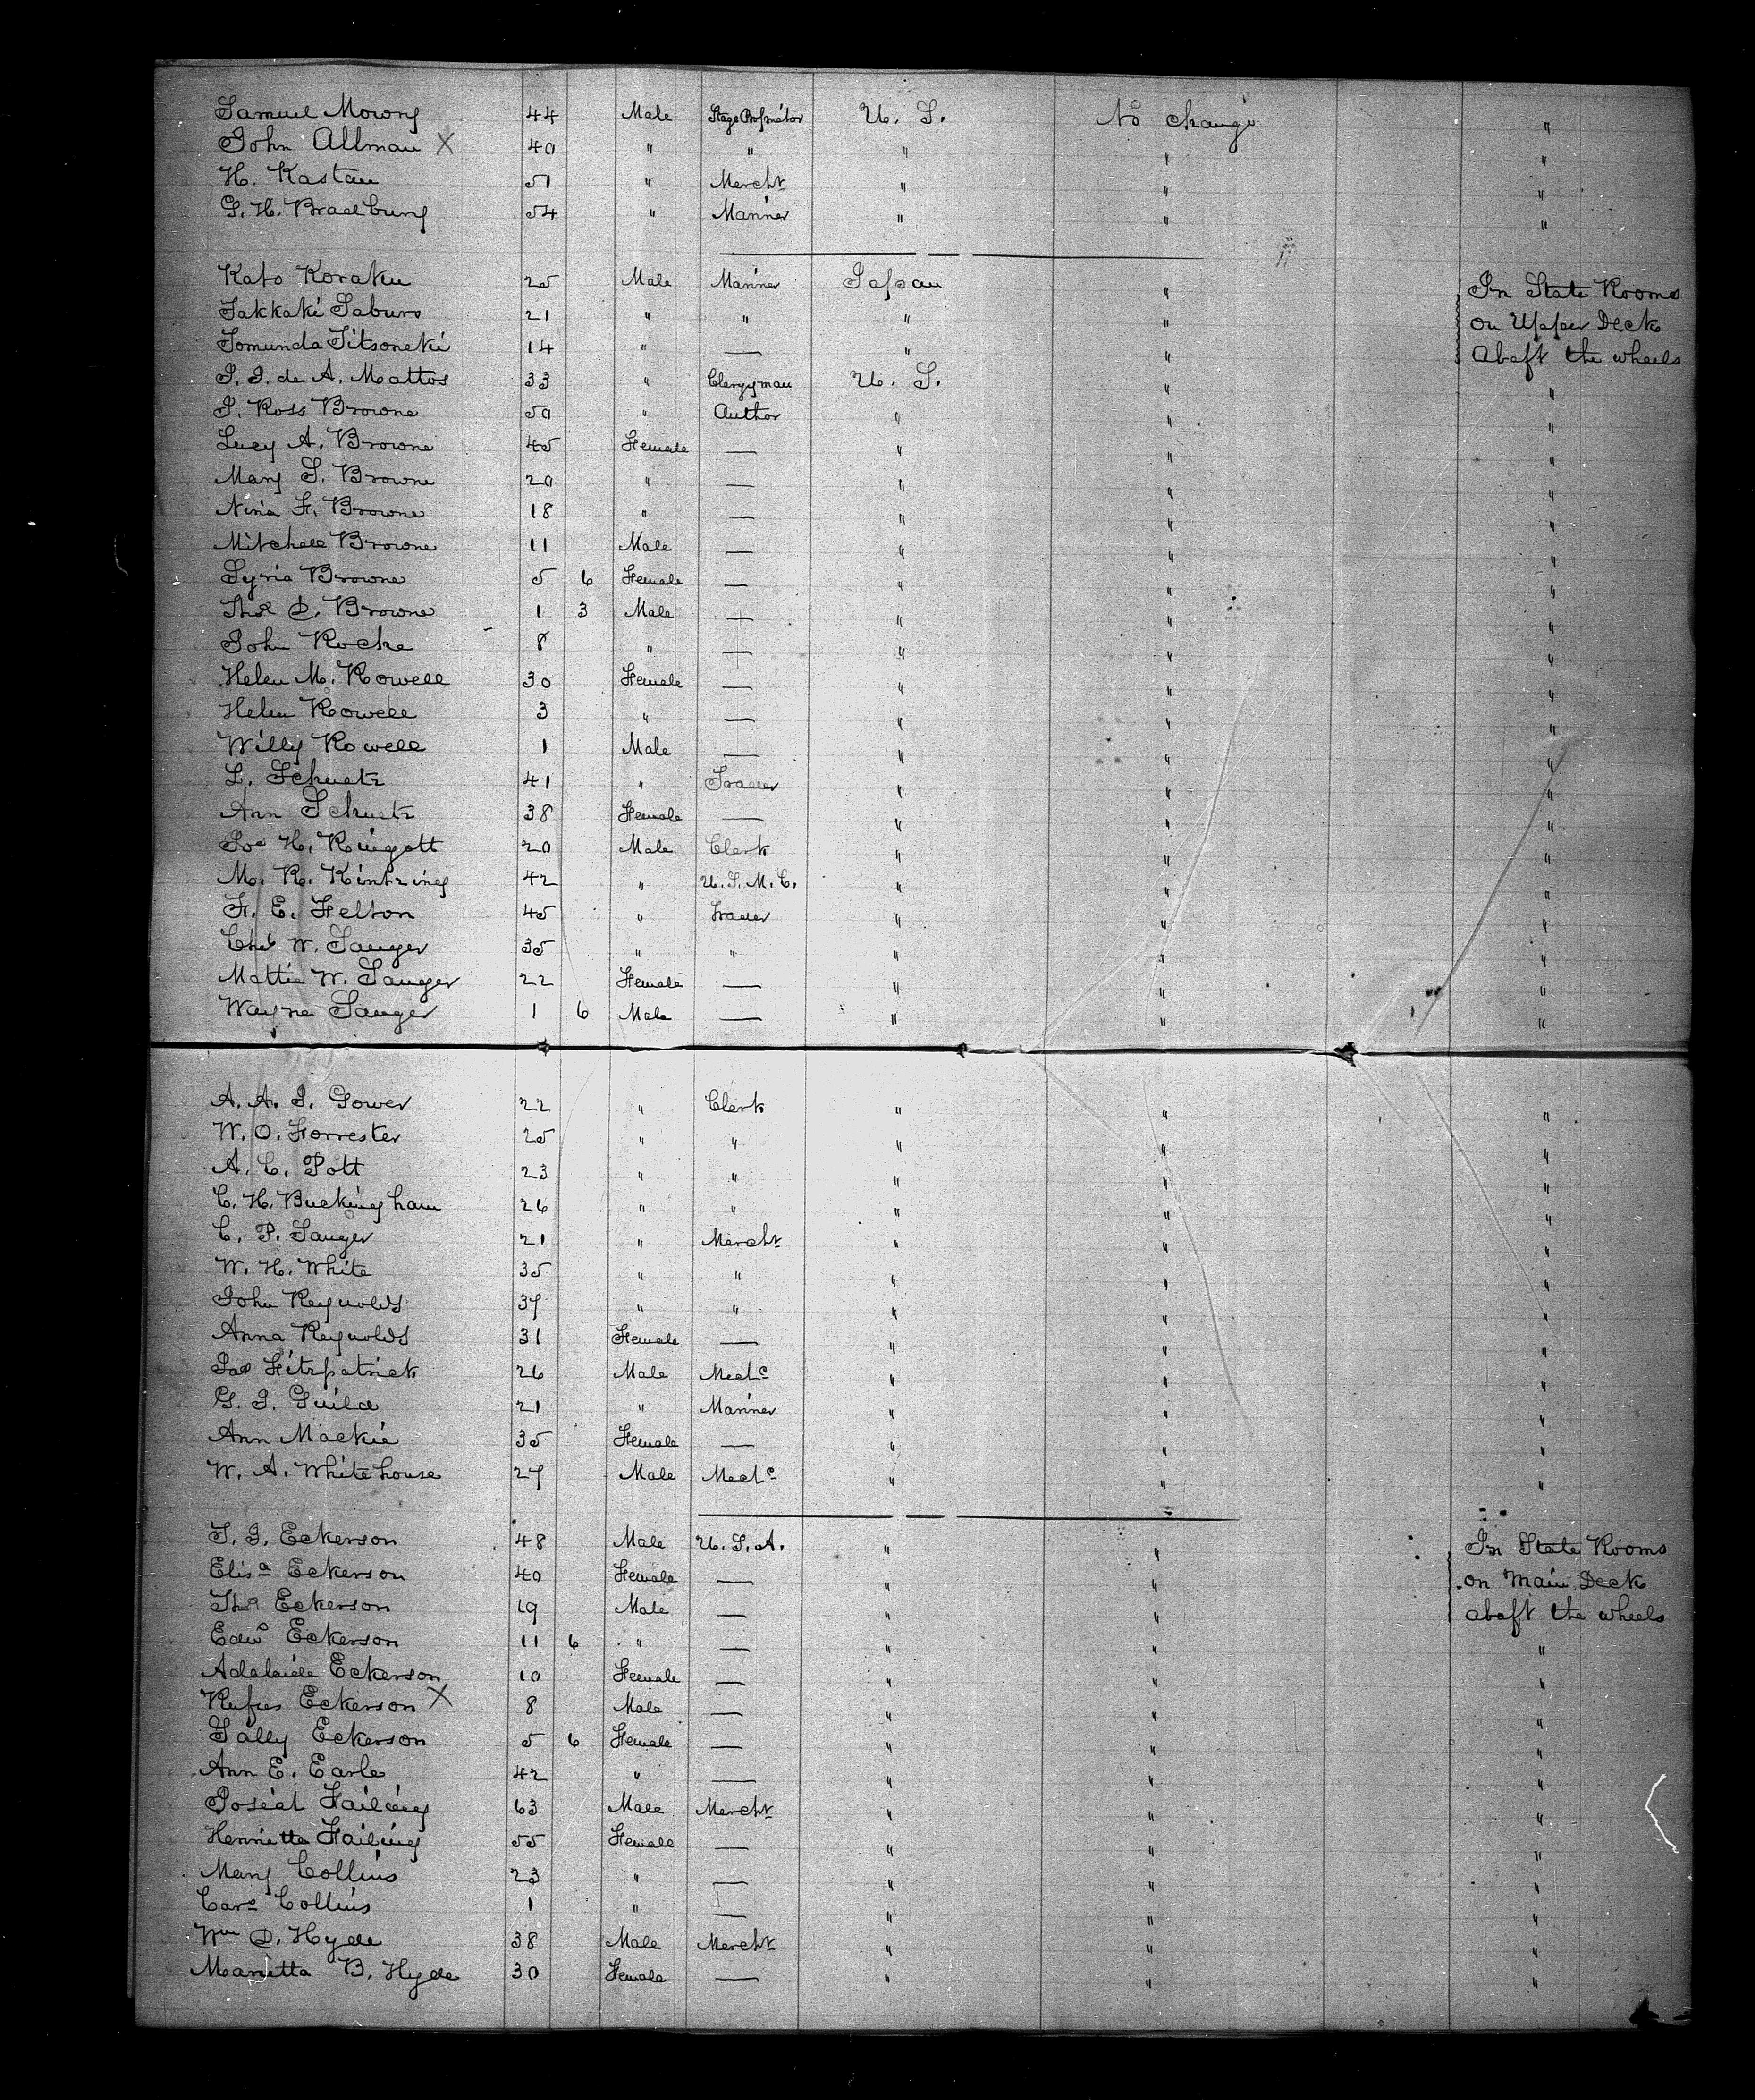 Samuel Morong 44 Male Stage Proprietor U. S. No change "
John Allman X 40 " " " " "
H. Kastan 51 " Mercht " " "
G. H. Bradbury 54 " Mariner " " "
Kato Koraku 25 Male Mariner Japan " In State Rooms
Sakkaki Saburo 21 " " " " on Upper Deck
Tomunda Titsoneki 14 " — " " Abaft the wheels
J. J. de A. Mattos 33 " Clergyman U. S. " "
J. Ross Browne 50 " Author " " "
Lucy A. Browne 45 Female — " " "
Mary S. Browne 20 " — " " "
Nina F. Browne 18 " — " " "
Mitchell Browne 11 Male — " " "
Syria Browne 5 6 Female — " " "
Thos D. Browne 1 3 Male — " " "
John Roche 8 " — " " "
Helen M. Rowell 30 Female — " " "
Helen Rowell 3 " — " " "
Willy Rowell 1 Male — " " "
L. Schuetz 41 " Trader " " "
Ann Schuetz 38 Female — " " "
Jos H. Ringott 20 Male Clerk " " "
M. R. Kintzing 42 " U. S. M. C. " " "
F. E. Felton 45 " Trader " " "
Chs W. Sanger 35 " " " " "
Mattie W. Sanger 22 Female — " " "
Wayne Sanger 1 6 Male — " " "
A. A. J. Gower 22 " Clerk " " "
W. O. Forrester 25 " " " " "
A. C. Pott 23 " " " " "
C. H. Buckingham 26 " " " " "
C. P. Sanger 21 " Mercht " " "
W. H. White 35 " " " " "
John Reynolds 37 " " " " "
Anna Reynolds 31 Female — " " "
Jas Fitzpatrick 26 Male Mechc " " "
G. J. Guild 21 " Mariner " " "
Ann Mackie 35 Female — " " "
W. A. Whitehouse 27 Male Mechc " " "
T. J. Eckerson 48 Male U. S. A. " " In State Rooms
Elisa Eckerson 40 Female — " " on Main Deck
Thos Eckerson 19 Male — " " abaft the wheels
Edwd Eckerson 11 6 " — " " "
Adelaide Eckerson 10 Female — " " "
Rufus Eckerson X 8 Male — " " "
Sally Eckerson 5 6 Female — " " "
Ann E. Earle 42 " — " " "
Josiah Failing 63 Male Mercht " " "
Henrietta Failing 55 Female — " " "
Mary Collins 23 " — " " "
Caro Collins 1 " — " " "
Wm D. Hyde 38 Male Mercht " " "
Marietta B. Hyde 30 Female — " " "